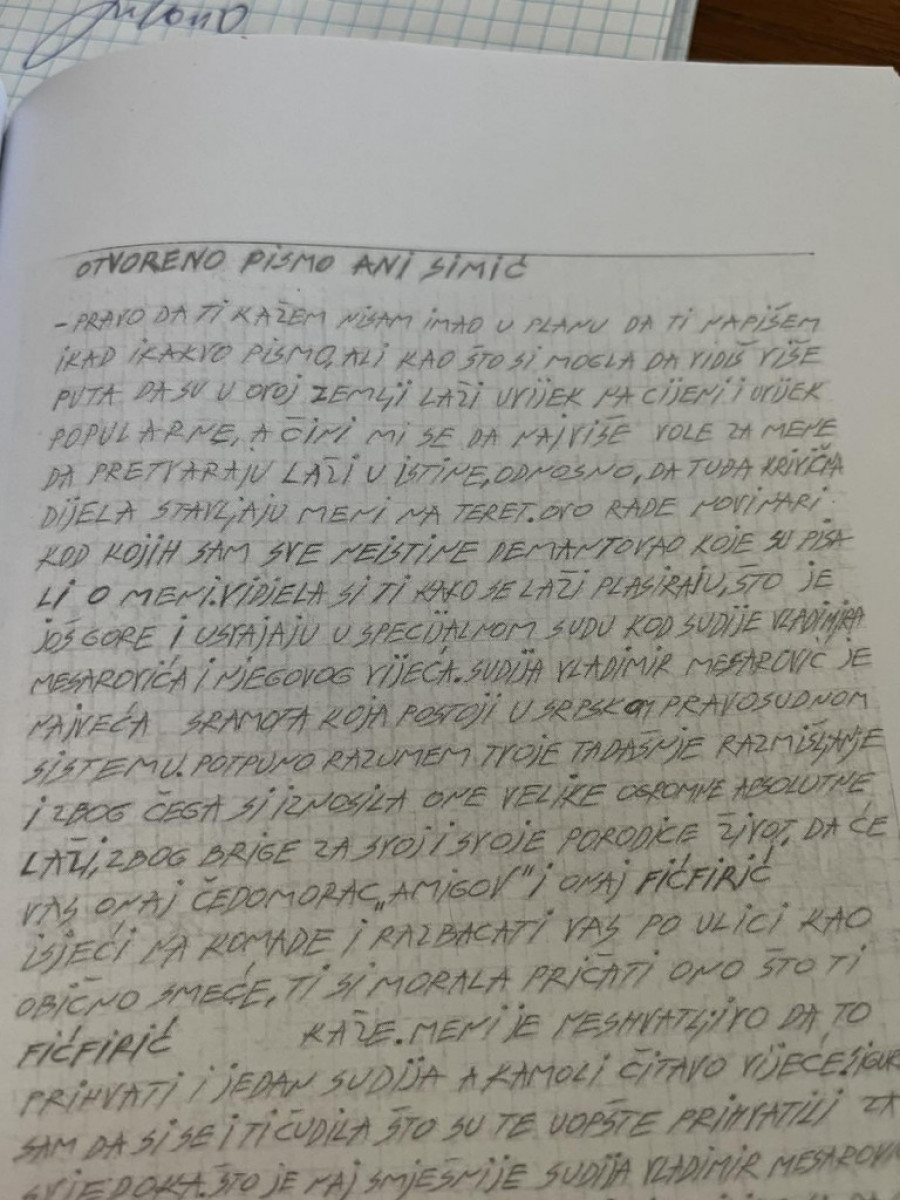 OTVORENO PISMO ANI SIMIĆ
- PRAVO DA TI KAŽEM NISAM IMAO U PLANU DA TI NAPIŠEM
IKAD IKAKVO PISMO, ALI KAO ŠTO SI MOGLA DA VIDIŠ VIŠE
PUTA DA SU U OVOJ ZEMLJI LAŽI UVIJEK NA CIJENI I UVIJEK
POPULARNE, A ČINI MI SE DA NAJVIŠE VOLE ZA MENE
DA PRETVARAJU LAŽI U ISTINE, ODNOSNO, DA TUĐA KRIVIČNA
DIJELA STAVLJAJU MENI NA TERET. OVO RADE NOVINARI
KOD KOJIH SAM SVE NEISTINE DEMANTOVAO KOJE SU PISA
LI O MENI. VIDJELA SI TI KAKO SE LAŽI PLASIRAJU, ŠTO JE
JOŠ GORE I USVAJAJU U SPECIJALNOM SUDU KOD SUDIJE VLADIMIRA
MESAROVIĆA I NJEGOVOG VIJEĆA. SUDIJA VLADIMIR MESAROVIĆ JE
NAJVEĆA SRAMOTA KOJA POSTOJI U SRPSKOM PRAVOSUDNOM
SISTEMU. POTPUNO RAZUMEM TVOJE TADAŠNJE RAZMIŠLJANJE
I ZBOG ČEGA SI IZNOSILA ONE VELIKE OGROMNE ABSOLUTNE
LAŽI, ZBOG BRIGE ZA SVOJ I SVOJE PORODICE ŽIVOT, DA ĆE
VAS ONAJ ČEDOMORAC „AMIGOV" I ONAJ FIĆFIRIĆ
ISJEĆI NA KOMADE I RAZBACATI VAS PO ULICI KAO
OBIČNO SMEĆE, TI SI MORALA PRIČATI ONO ŠTO TI
FIĆFIRIĆ KAŽE. MENI JE NESHVATLJIVO DA TO
PRIHVATI I JEDAN SUDIJA A KAMOLI ČITAVO VIJEĆE SIGUR
SAM DA SI SE I TI ČUDILA ŠTO SU TE UOPŠTE PRIHVATILI ZA
SVJEDOKA. ŠTO JE NAJ SMJEŠNIJE SUDIJA VLADIMIR MESAROVI